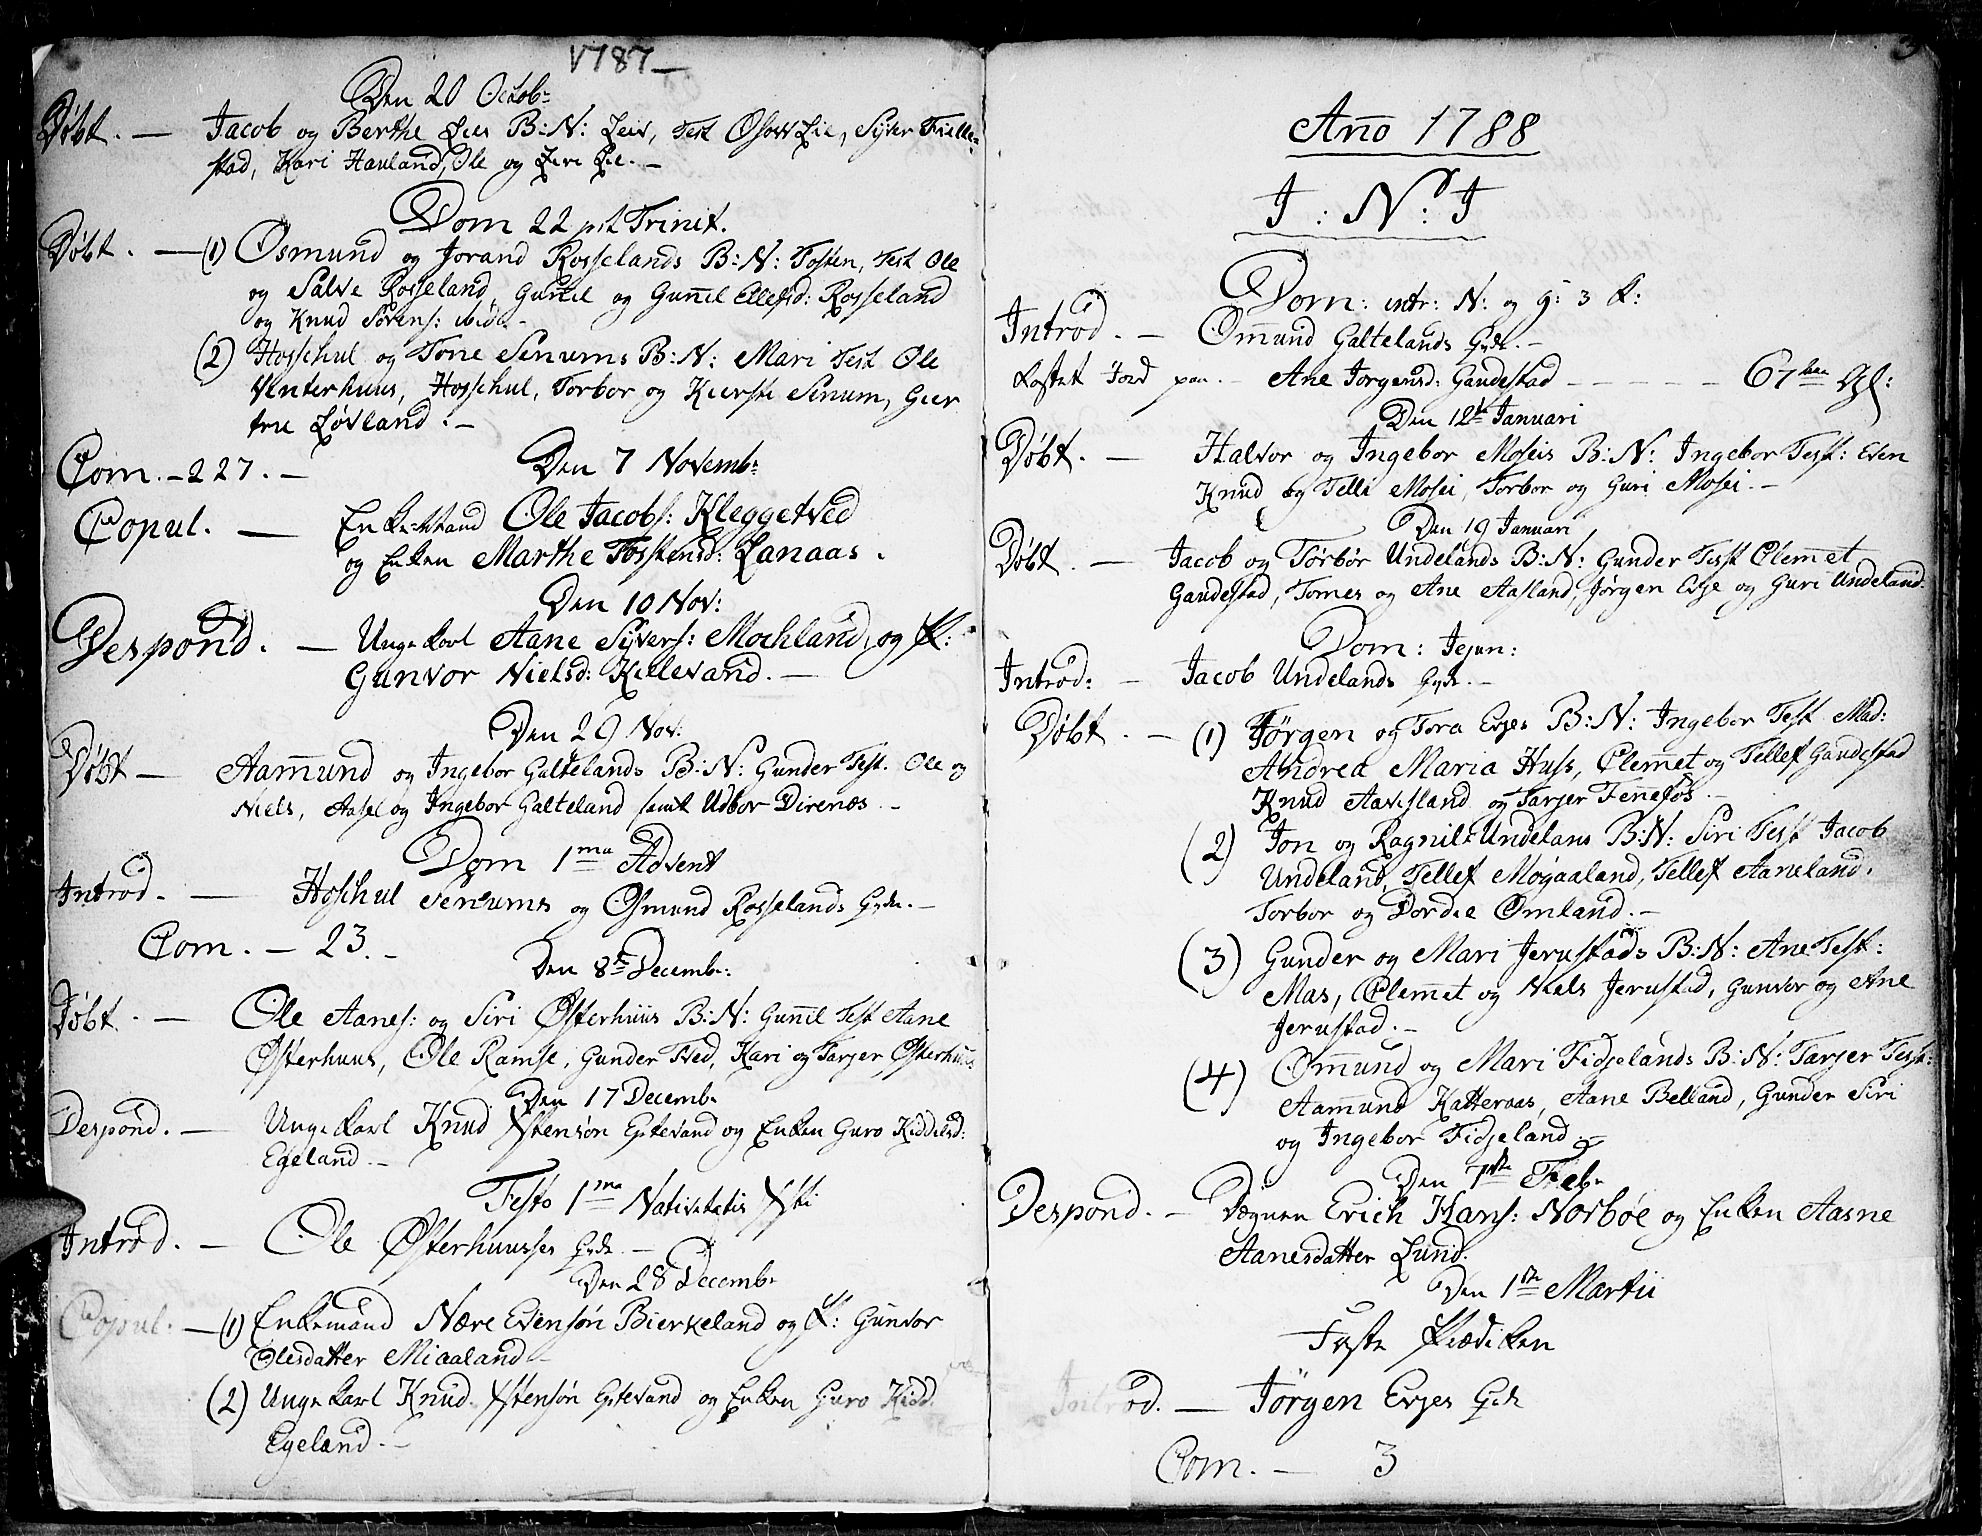 1787
Den 20 Octob:
Døbt. — Jacob og Berthe Lies B: N: Leiv, Test Osow Lie, Syver Fielle-
stad, Kari Hauland, Ole og Live Lie. —
Dom 22 pst Trinit.
Døbt. — (1) Osmund og Jorand Rosselands B: N: Tosten, Test Ole
og Salve Rosseland, Guñil og Guñil Ellefsd: Rosseland
og Knud Sørens: ibid. —
(2) Hoschul og Tone Senums B: N: Mari Test Ole
Vinterhuus, Hoschul, Torbor og Kiersti Senum, Gier
tru Løvland. —
Com. — 227. —
Den 7 Novemb:
Copul. — Enkemand Ole Jacobs: Kleggetved
og Enken Marthe Tostensd: Lanaas.
Den 10 Nov:
Despond. — Ungekarl Aane Syvers: Mochland, og P:
Gunvor Nielsd: Killevand. —
Den 29 Nov:
Døbt — Aamund og Ingebor Galtelands B: N: Gunder Test. Ole og
Niels, Assel og Ingebor Galteland samt Udbor Direnæs. —
Dom 1ma Advent
Introd. — Hoschul Senums og Osmund Rosselands Gyde. —
Com. — 23. —
Den 8de Decemb:
Døbt. — Ole Aanes: og Siri Østerhuus B: N: Guñil Test Aane
Østerhuus, Ole Ramse, Gunder Tved, Kari og Tarjer Østerhuus
Den 17 Decemb:
Despond. — Ungekarl Knud Ystensøn Eptevand og Enken Guro Kiddelsd:
Egeland. —
Festo 1ma Nativitatis Xsti
Introd. — Ole Østerhuusses Gyde. —
Den 28 Decemb:
Copul. — (1) Enkemand Nære Evensøn Bierkeland og P: Gunvor
Olesdatter Miaaland —
(2) Ungekarl Knud Ystensøn Eptevand og Enken Guro Kidd.
Egeland. —
3
Año 1788
I: N: J
Dom: intr: N: og H: 3 K:
Introd. — Omund Galtelands Gyde. —
Kastet Jord paa. — Ane Jorgensd: Gaudestad — — — — 67 Aar Gl:
Den 12te Januari
Døbt. — Halvor og Ingebor Moseis B: N: Ingebor Test: Even
Knud og Telli Mosei, Torbor og Guri Mosei. —
Den 19 Januari
Døbt. — Jacob og Torbør Undelands B: N: Gunder Test Clemet
Gaudestad, Tomes og Ane Aasland, Jørgen Evje og Guri Undeland.
Dom: Jejun:
Introd: — Jacob Undelands Gyde. —
Døbt. — (1) Jørgen og Tora Evjes B: N: Ingebor Test Mad:
Andrea Maria Huss, Clemet og Tellef Gaudestad
Knud Aavesland og Tarjer Feñefos. —
(2) Jon og Ragnil Undelans B: N: Siri Test Jacob
Undeland, Tellef Mogaaland, Tellef Aaneland.
Torbor og Dordie Omland. —
(3) Gunder og Mari Jerustads B: N: Ane Test:
Mas, Clemet og Niels Jerustad, Gunvor og Ane
Jerustad. —
(4) Omund og Mari Fidjelands B: N: Tarjer Test:
Aamund Katteraas, Aane Belland, Gunder Siri
og Ingebor Fidjeland. —
Den 7de Feb:
Despond. — Degnen Erich Hans: Norbøe og Enken Aasne
Aanesdatter Lund.
Den 1te Martii
Faste Prædiken
Introd. — Jørgen Evjes Gyde
Com. — 3